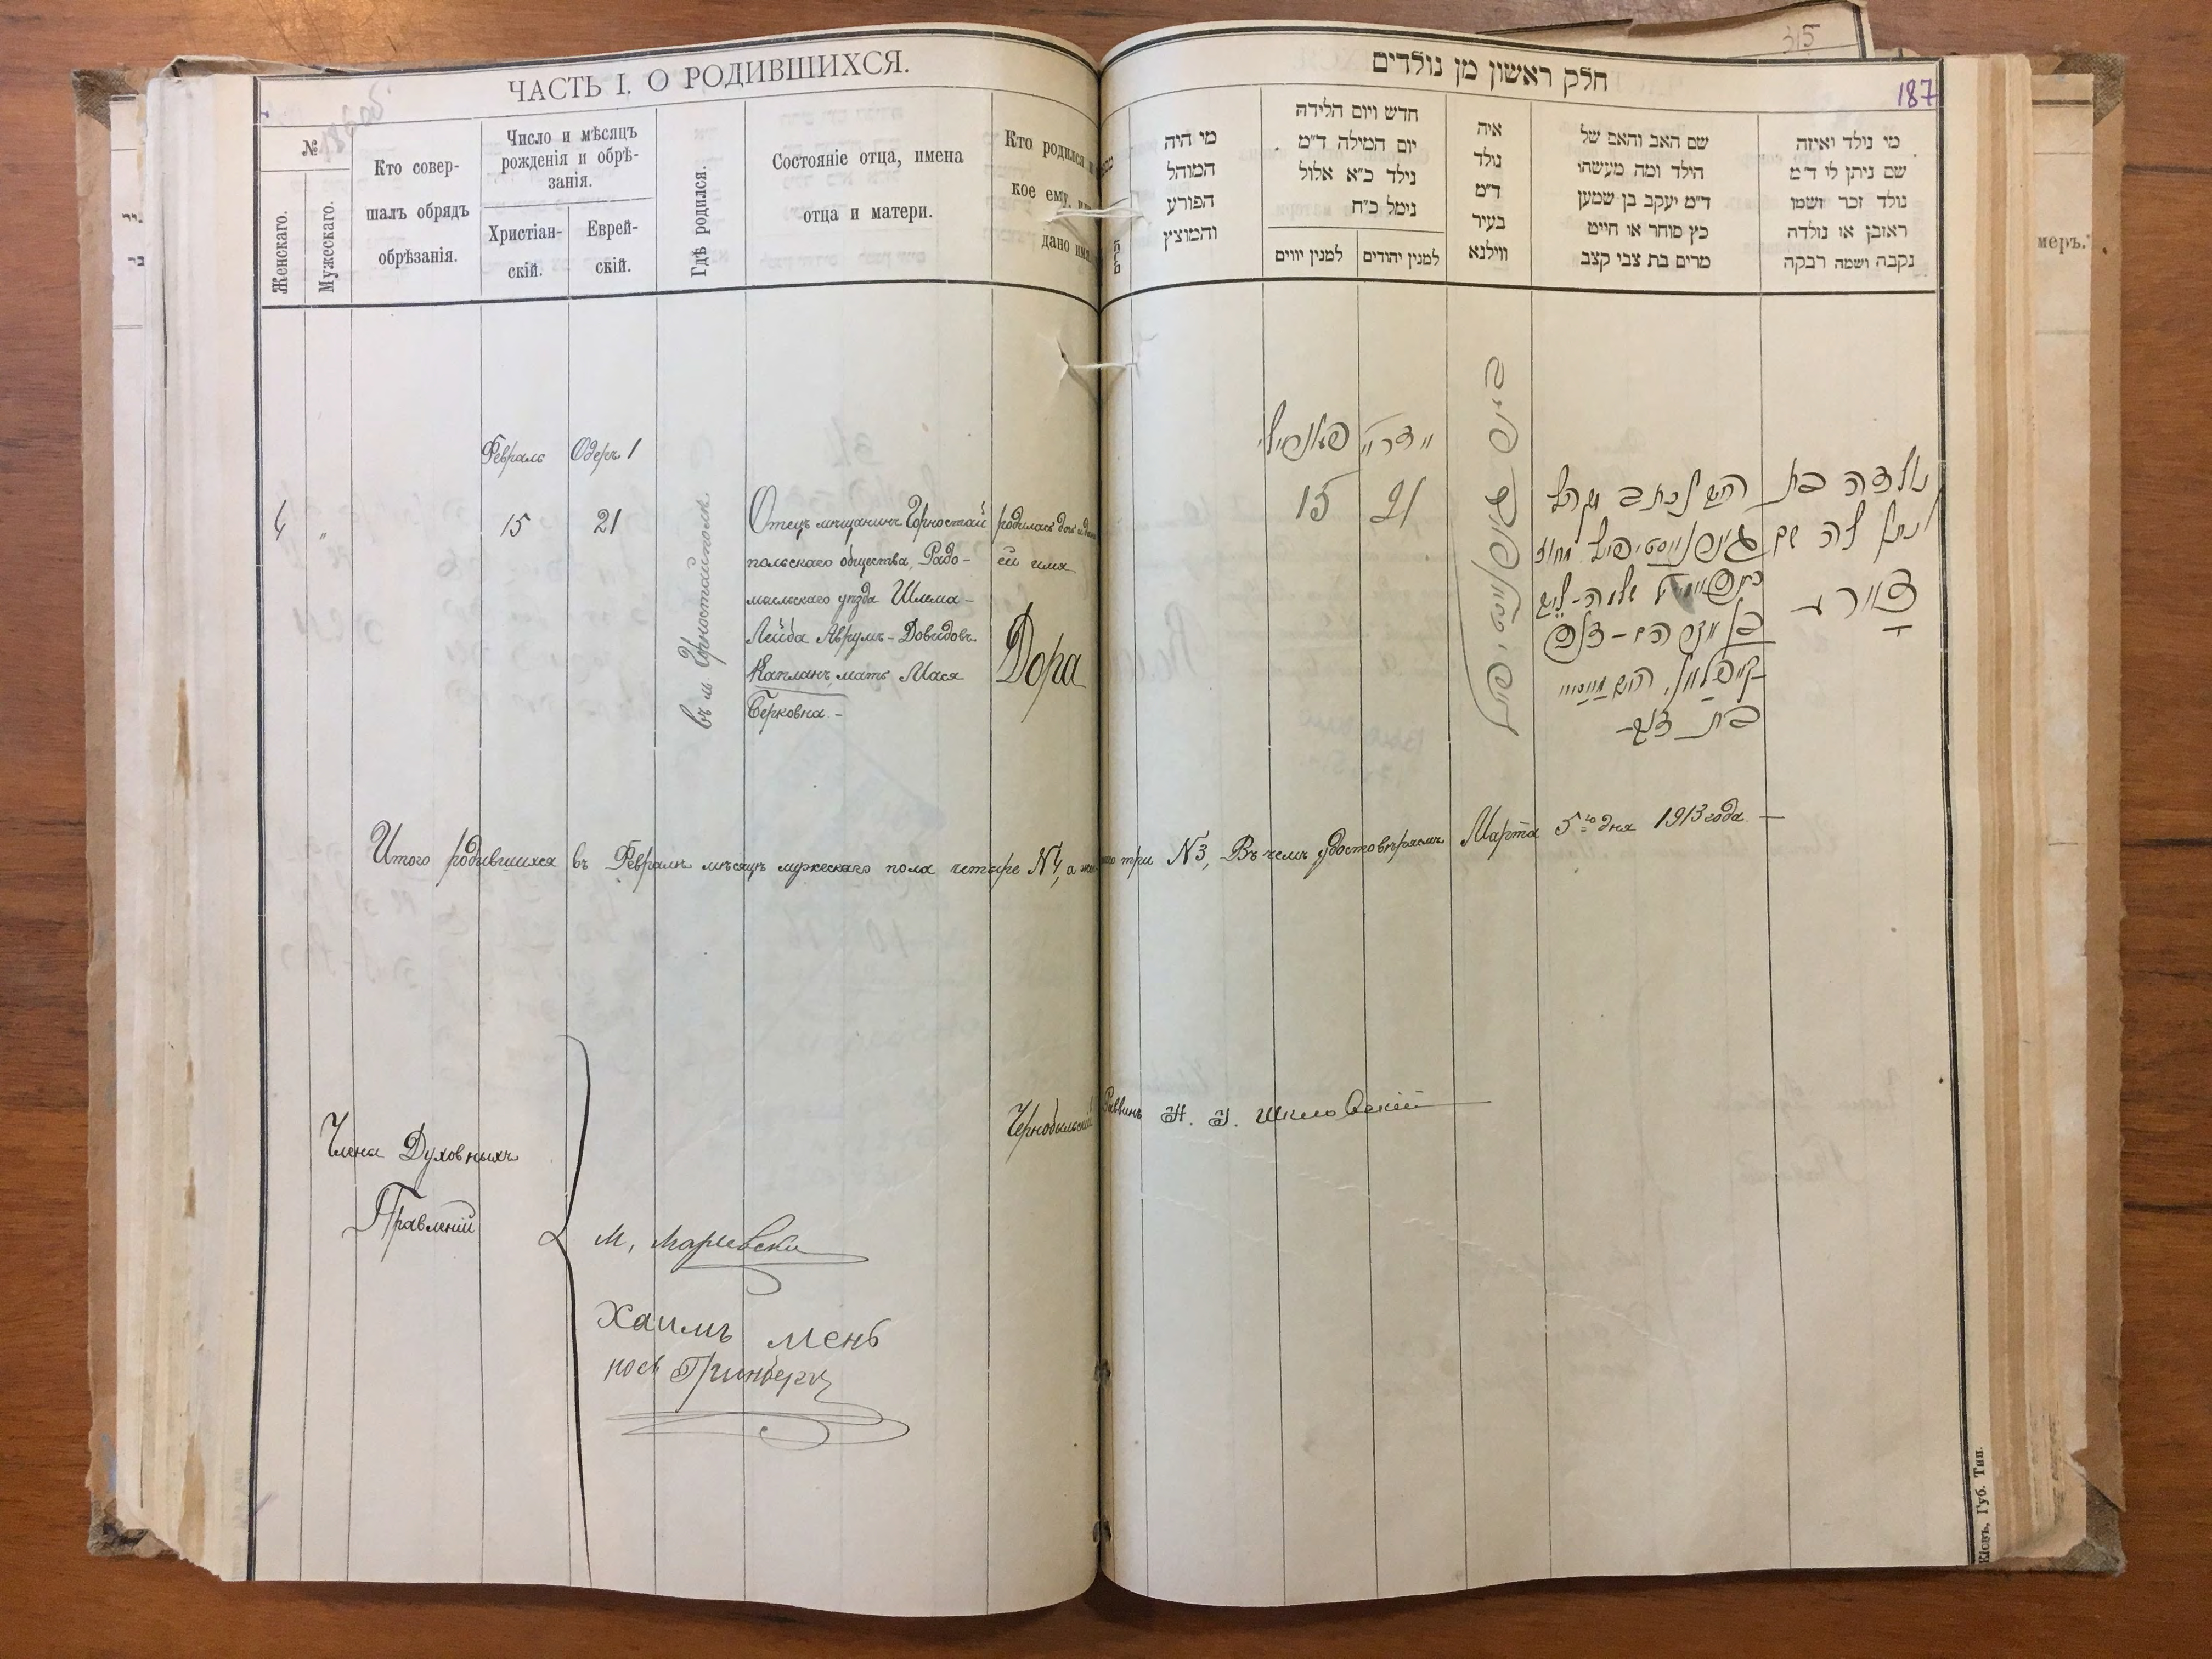 ЧАСТЬ I. О РОДИВШИХСЯ.
№
Женскаго.
Мужескаго.
Кто совер-
шалъ обрядъ
обрѣзанія.
Число и мѣсяцъ
рожденія и обрѣ-
занія.
Христіан-
скій.
Еврей-
скій.
Гдѣ родился.
Состояніе отца, имена
отца и матери.
Кто родился и
кое ему
дано имя
Февраль Одеръ 1
4 „ 15 21
въ м. Горностайполѣ
Отецъ мѣщанинъ Горностай
польскаго общества, Радо-
мысльскаго уѣзда Шлема-
Лейба Аврумъ-Довидовъ
Капланъ, мать Мася
Берковна -
родилась дочь и дано
ей имя
Дора
Итого родившихся въ Февралѣ мѣсяцѣ мужескаго пола четыре №4, а
Члены Духовныхъ
Правленій
М. Маріевски
Хаимъ Мень
Гринберг
Чернобыльскій
חלק ראשון מן נולדים
187
315
מי נולד ואיזה
שם ניתן לו ד״מ
נולד זכר ושמו
ראובן או נולדה
נקבה ושמה רבקה
שם האב והאם של
הילד ומה מעשהו
ד״מ יעקב בן שמען
כץ סוחר או חייט
מרים בת צבי קצב
איה
נולד
ד״מ
בעיר
ווילנא
חדש ויום הלידה
יום המילה ד״מ
נילד כ״א אלול
נימל כ״ח
למנין יהודים
למנין יווים
מי היה
המוהל
הפורע
והמוצץ
15 21
נולדה בת
ונתן לה שם
דורע
בת
три №3, Въ чемъ удостовѣряемъ Марта 5го дня 1913 года —
Раввинъ Н. І. Шкловскій
Кіевъ, Губ. Тип.
меръ.